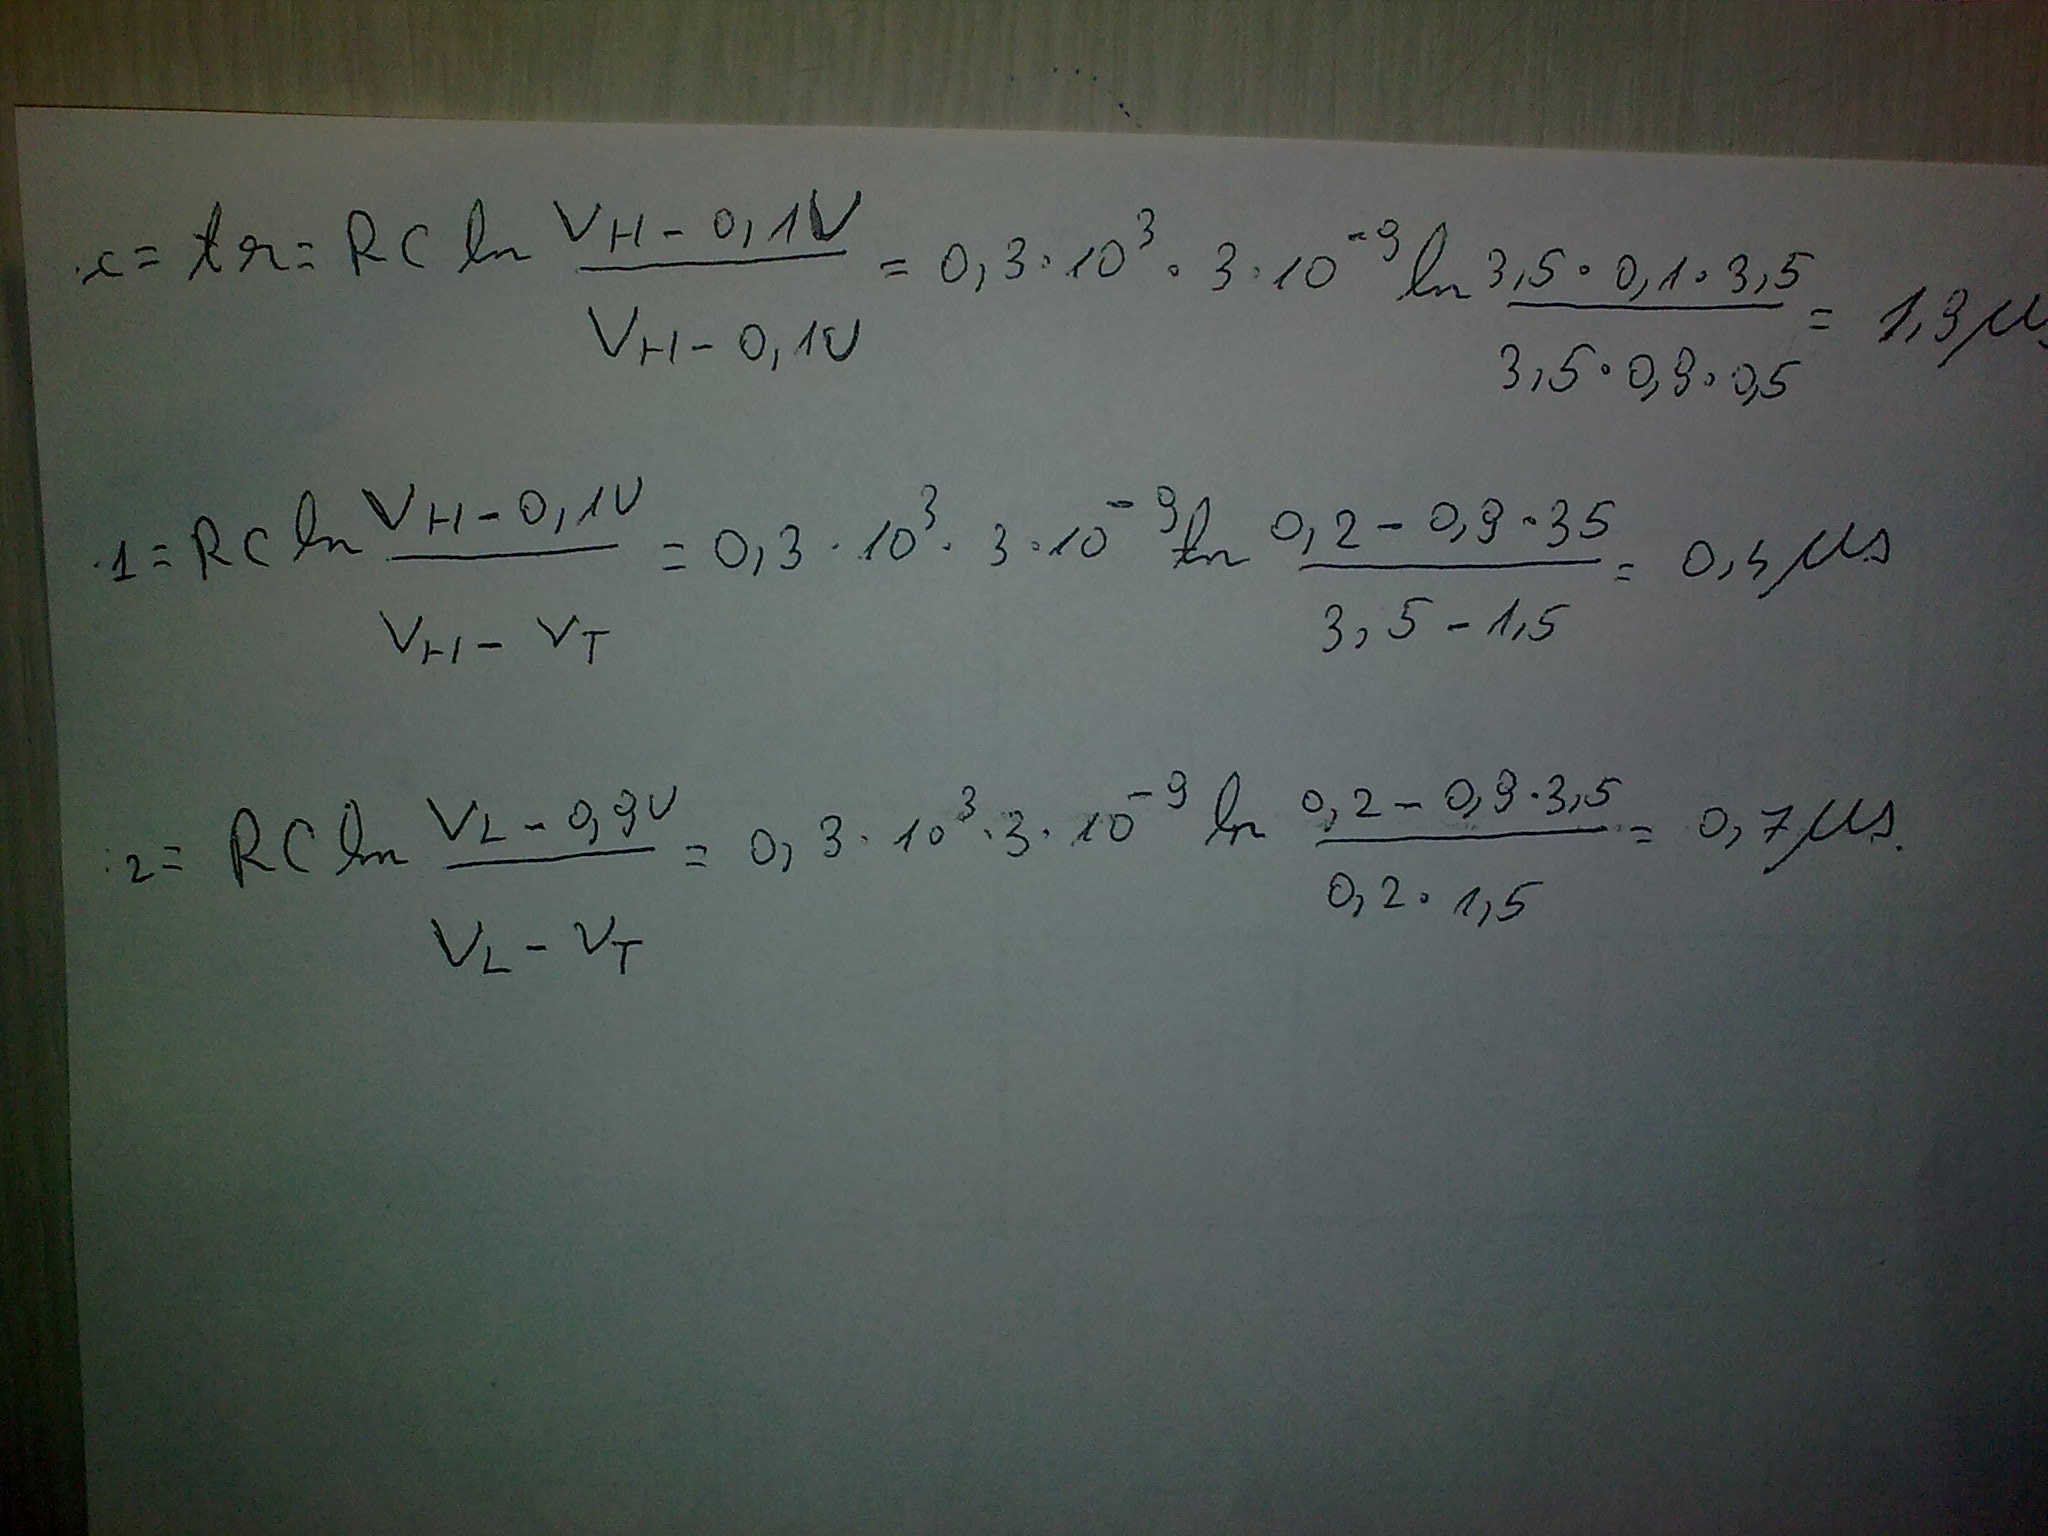 .c = tr = RC ln (VH - 0,1V)/(VH - 0,1V) = 0,3·10³·3·10⁻⁹ ln (3,5·0,1·3,5)/(3,5·0,9·0,5) = 1,9 μs
.1 = RC ln (VH - 0,1V)/(VH - VT) = 0,3·10³·3·10⁻⁹ ln (0,2 - 0,9·35)/(3,5 - 1,5) = 0,4 μs
:2 = RC ln (VL - 0,9V)/(VL - VT) = 0,3·10³·3·10⁻⁹ ln (0,2 - 0,9·3,5)/(0,2·1,5) = 0,7 μs.